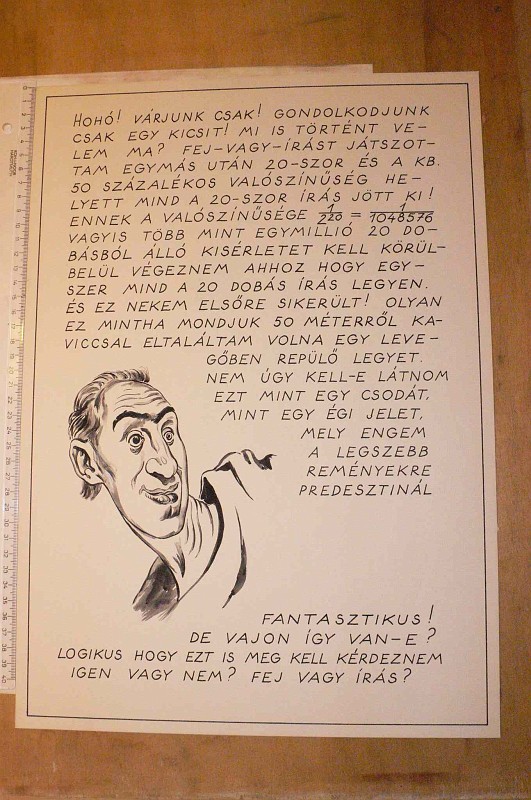 HOHÓ! VÁRJUNK CSAK! GONDOLKODJUNK
CSAK EGY KICSIT! MI IS TÖRTÉNT VE-
LEM MA? FEJ-VAGY-ÍRÁST JÁTSZOT-
TAM EGYMÁS UTÁN 20-SZOR ÉS A KB.
50 SZÁZALÉKOS VALÓSZÍNŰSÉG HE-
LYETT MIND A 20-SZOR ÍRÁS JÖTT KI!
ENNEK A VALÓSZÍNŰSÉGE 1/220 = 1/1048576
VAGYIS TÖBB MINT EGYMILLIÓ 20 DO-
BÁSBÓL ÁLLÓ KISÉRLETET KELL KÖRÜL-
BELÜL VÉGEZNEM AHHOZ HOGY EGY-
SZER MIND A 20 DOBÁS ÍRÁS LEGYEN.
ÉS EZ NEKEM ELSŐRE SIKERÜLT! OLYAN
EZ MINTHA MONDJUK 50 MÉTERRŐL KA-
VICCSAL ELTALÁLTAM VOLNA EGY LEVE-
GŐBEN REPÜLŐ LEGYET.
NEM ÚGY KELL-E LÁTNOM
EZT MINT EGY CSODÁT,
MINT EGY ÉGI JELET,
MELY ENGEM
A LEGSZEBB
REMÉNYEKRE
PREDESZTINÁL
FANTASZTIKUS!
DE VAJON ÍGY VAN-E?
LOGIKUS HOGY EZT IS MEG KELL KÉRDEZNEM
IGEN VAGY NEM? FEJ VAGY ÍRÁS?